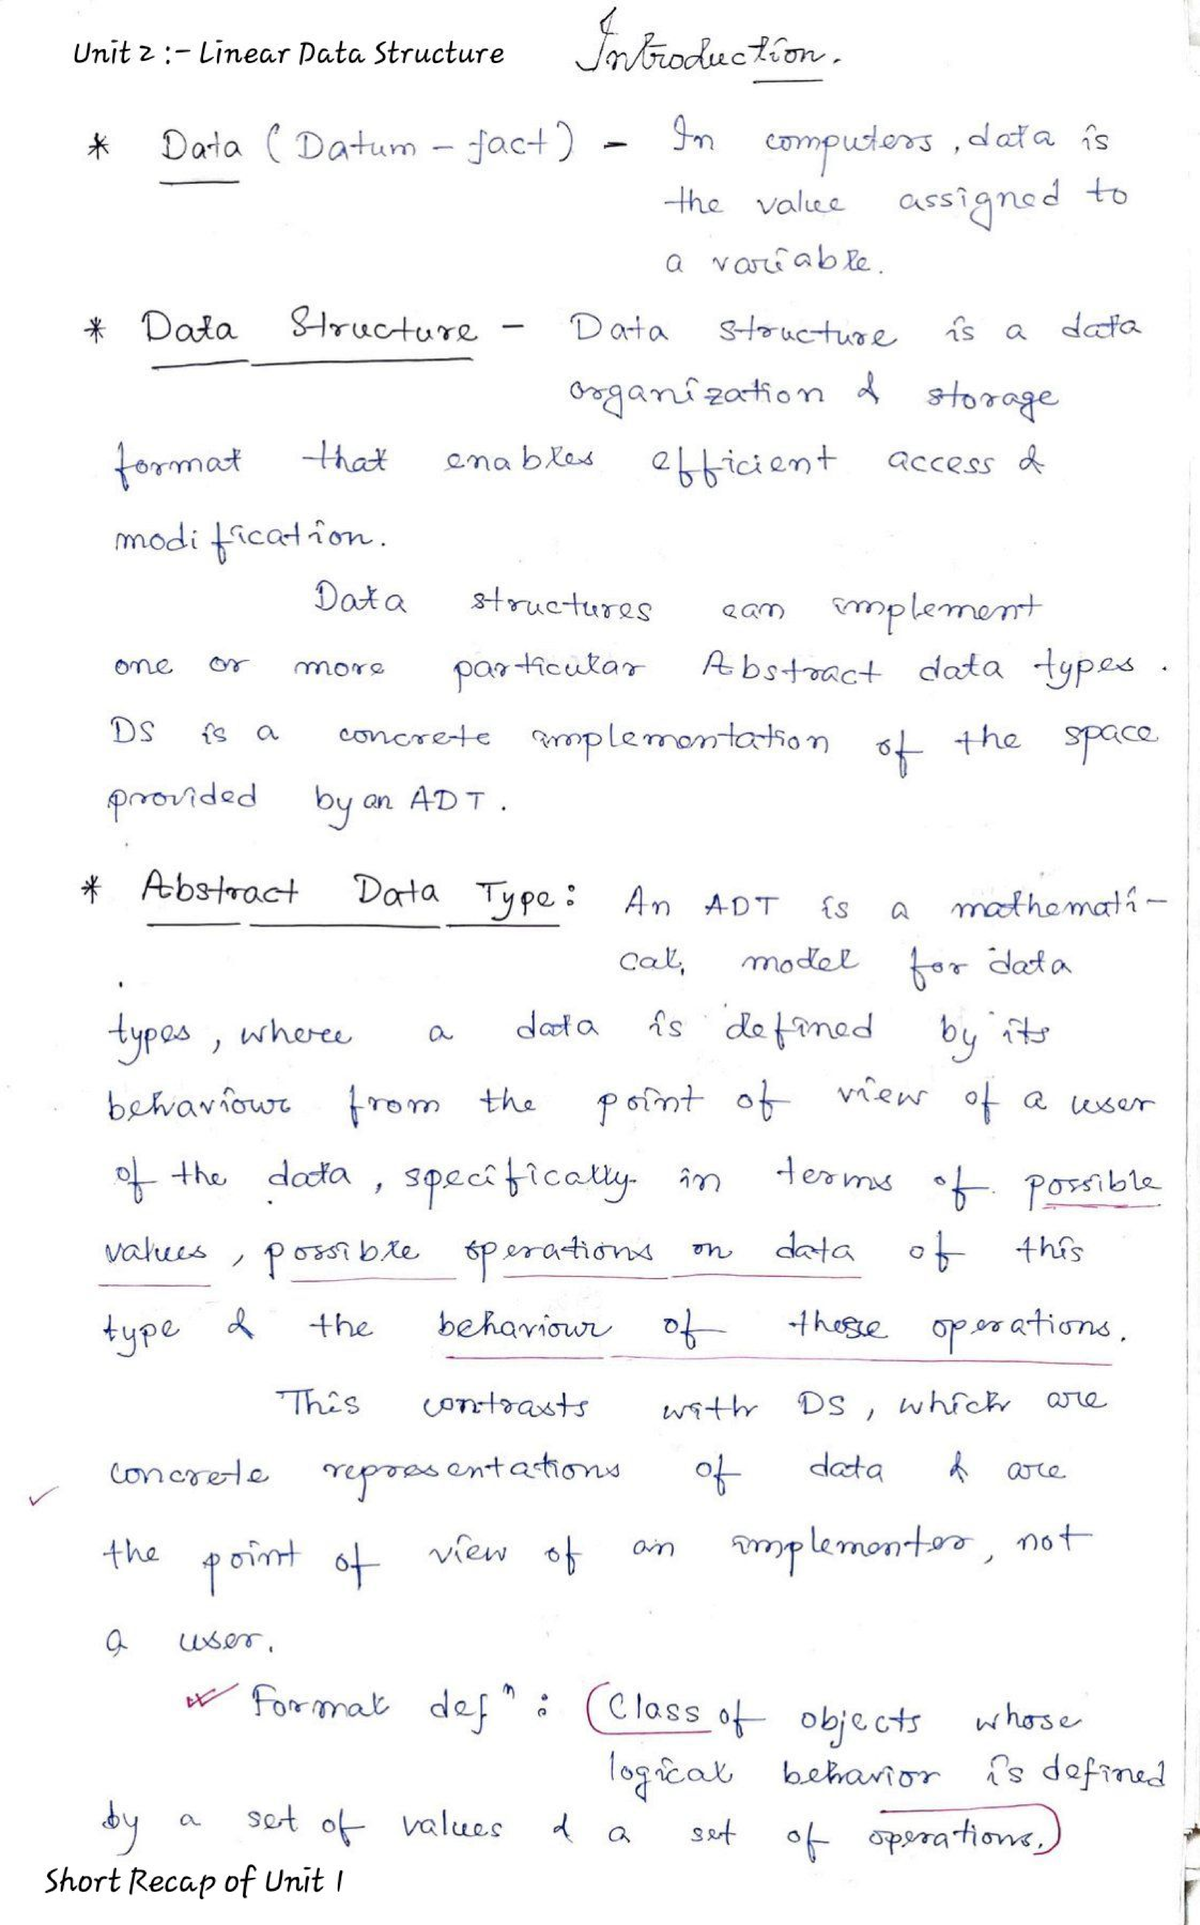 Unit 2 :- Linear Data Structure
Introduction.
* Data (Datum - fact) - In computers, data is
the value assigned to
a variable.
* Data Structure - Data structure is a data
organization & storage
format that enables efficient access &
modification.
Data structures can implement
one or more particular Abstract data types.
DS is a concrete implementation of the space
provided by an ADT.
* Abstract Data Type: An ADT is a mathemati-
cal, model for data
types, where a data is defined by its
behaviour from the point of view of a user
of the data, specifically in terms of possible
values, possible operations on data of this
type & the behaviour of these operations.
This contrasts with DS, which are
concrete representations of data & are
the point of view of an implementer, not
a user.
Formal defn : (Class of objects whose
logical behavior is defined
by a set of values & a set of operations.)
Short Recap of Unit 1